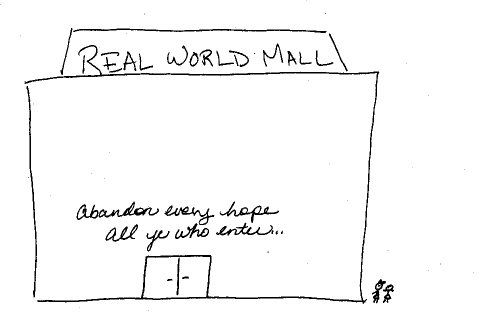 REAL WORLD MALL
abandon every hope
all ye who enter...